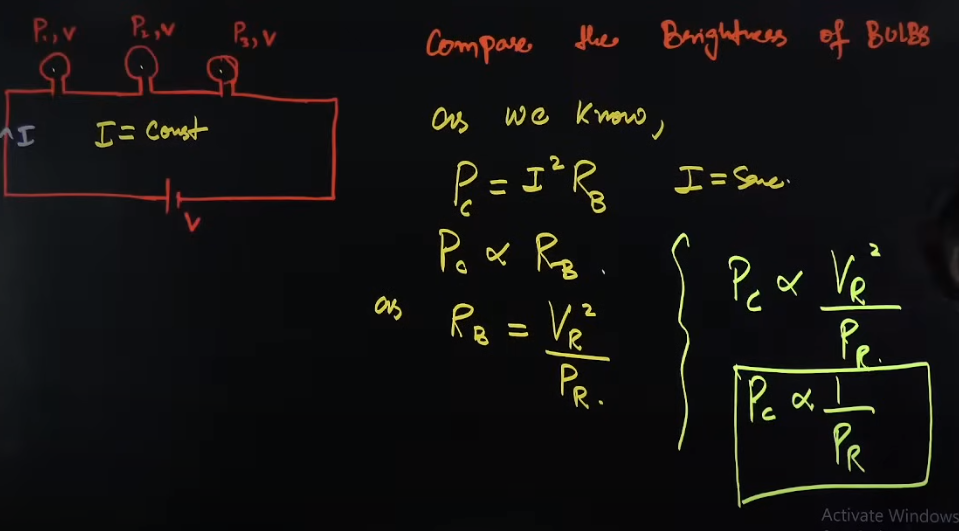 P₁, V P₂, V P₃, V
I I = Const
V
Compare the Brightness of BULBS
as we know,
P_C = I² R_B I = Same.
P_0 ∝ R_B .
as R_B = V_R² / P_R .
P_C ∝ V_R² / P_R .
P_C ∝ 1 / P_R
Activate Windows